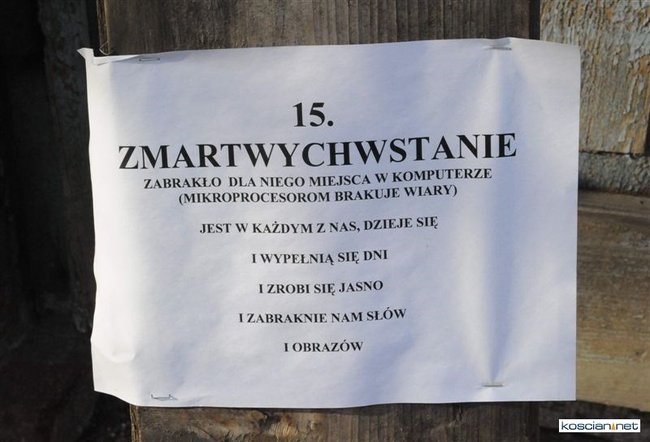 15.
ZMARTWYCHWSTANIE
ZABRAKŁO DLA NIEGO MIEJSCA W KOMPUTERZE
(MIKROPROCESOROM BRAKUJE WIARY)
JEST W KAŻDYM Z NAS, DZIEJE SIĘ
I WYPEŁNIĄ SIĘ DNI
I ZROBI SIĘ JASNO
I ZABRAKNIE NAM SŁÓW
I OBRAZÓW
koscian.net